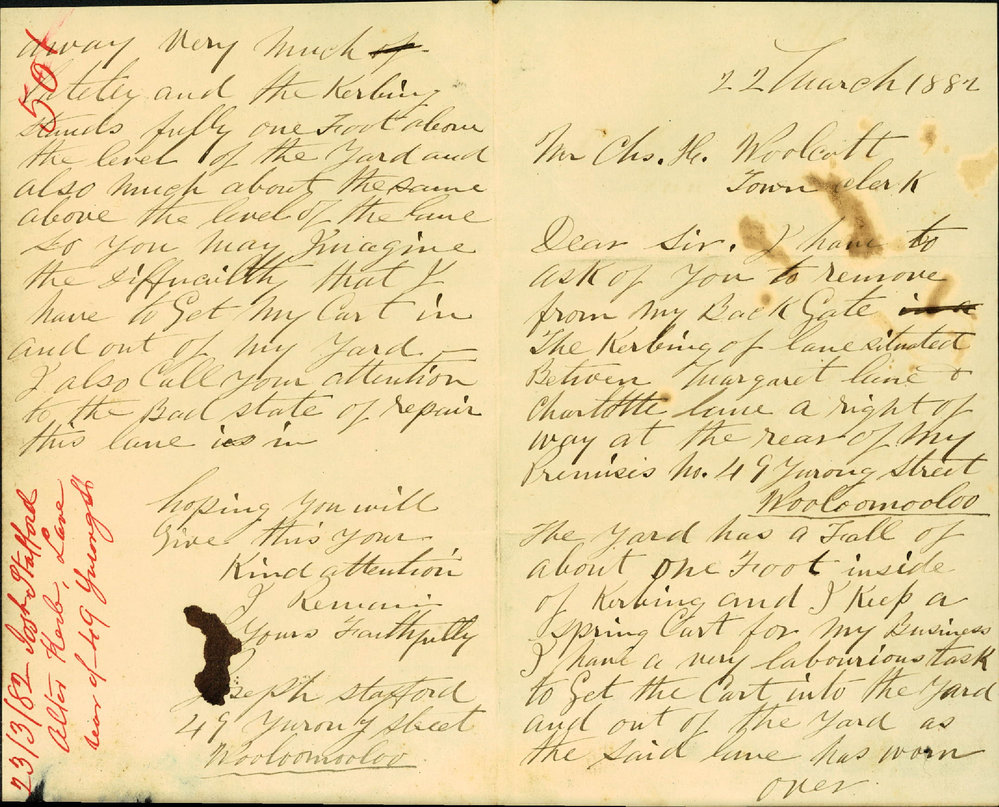 22 March 1882
Mr Chs. H. Woolcott
Town Clerk
Dear Sir. I have to
ask of you to remove
from my Back Gate in a
The Kerbing of lane situated
Betwen Margaret lane &
Charlotte lane a right of
way at the rear of my
Premisis No. 49 Yurong Street
Wooloomooloo
The Yard has a Fall of
about one Foot inside
of Kerbing and I Keep a
Spring Cart for my Business
I have a very labourious task
to Get the Cart into the Yard
and out of the Yard as
the said lane has worn
over
away very much of
lateley and the Kerbing
stands fully one Foot above
the level of the Yard and
also much about the same
above the level of the lane
so you may Imagine
the Diffucilty that I
have to Get my Cart in
and out of my Yard
I also Call your attention
to the Bad state of repair
this lane is in
hoping you will
Give this your
Kind attention
I Remain
Yours Faithfully
Joseph Stafford
49 Yurong Street
Wooloomooloo
501
23/3/82 Josh Stafford
Alter Kerb, Lane
rear of 49 Yurong St